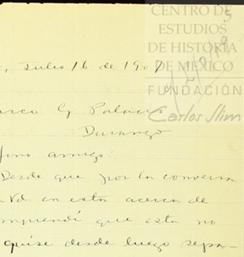 CENTRO DE
ESTUDIOS
DE HISTORIA
DE MÉXICO
FUNDACIÓN
Carlos Slim
Julio 16 de 190
G. Palacio
Durango
amigo:
Desde que por la conversa
Vd en esta acerca de
mprendí que esta no
quise desde luego sepa-